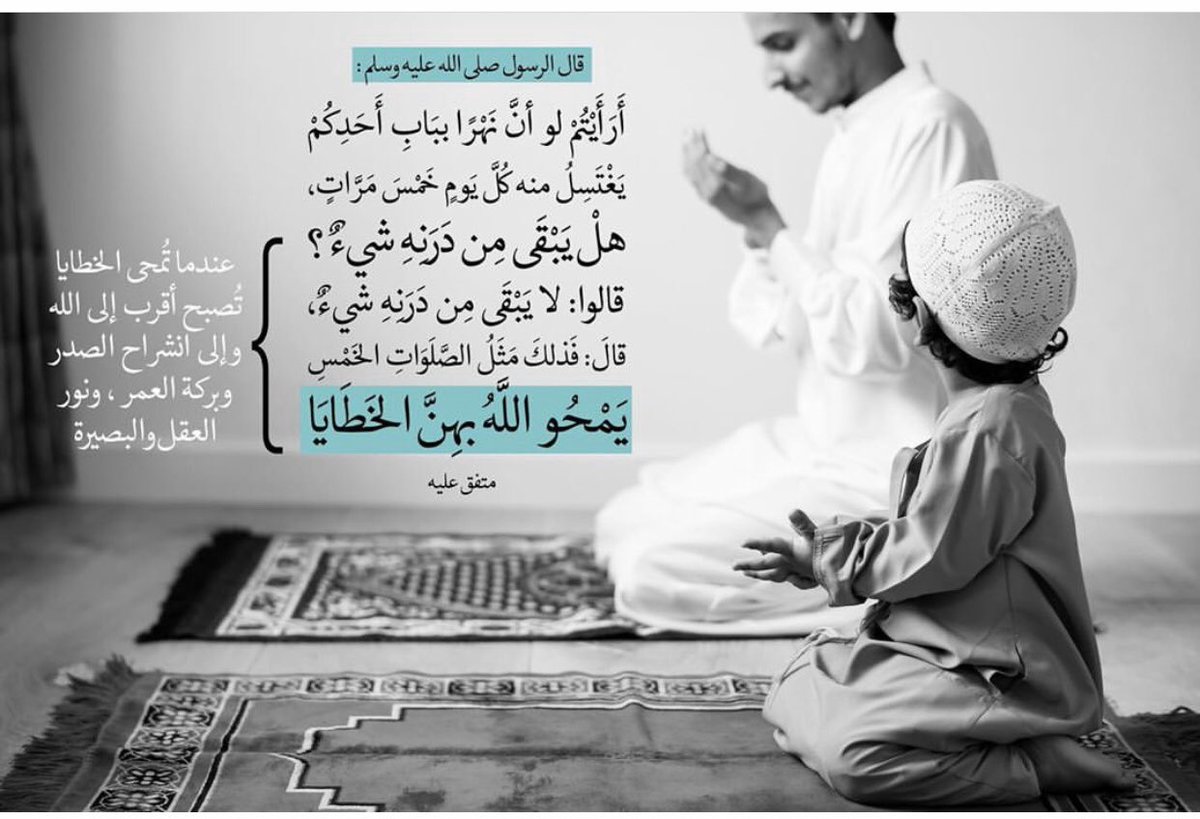 قال الرسول صلى الله عليه وسلم :
أَرَأَيْتُمْ لو أنَّ نَهْرًا ببَابِ أَحَدِكُمْ
يَغْتَسِلُ منه كُلَّ يَومٍ خَمْسَ مَرَّاتٍ،
هلْ يَبْقَى مِن دَرَنِهِ شيءٌ؟
قالوا: لا يَبْقَى مِن دَرَنِهِ شيءٌ،
قالَ: فَذلكَ مَثَلُ الصَّلَوَاتِ الخَمْسِ
يَمْحُو اللَّهُ بهِنَّ الخَطَايَا
متفق عليه
عندما تُمحى الخطايا
تُصبح أقرب إلى الله
وإلى انشراح الصدر
وبركة العمر ، ونور
العقل والبصيرة